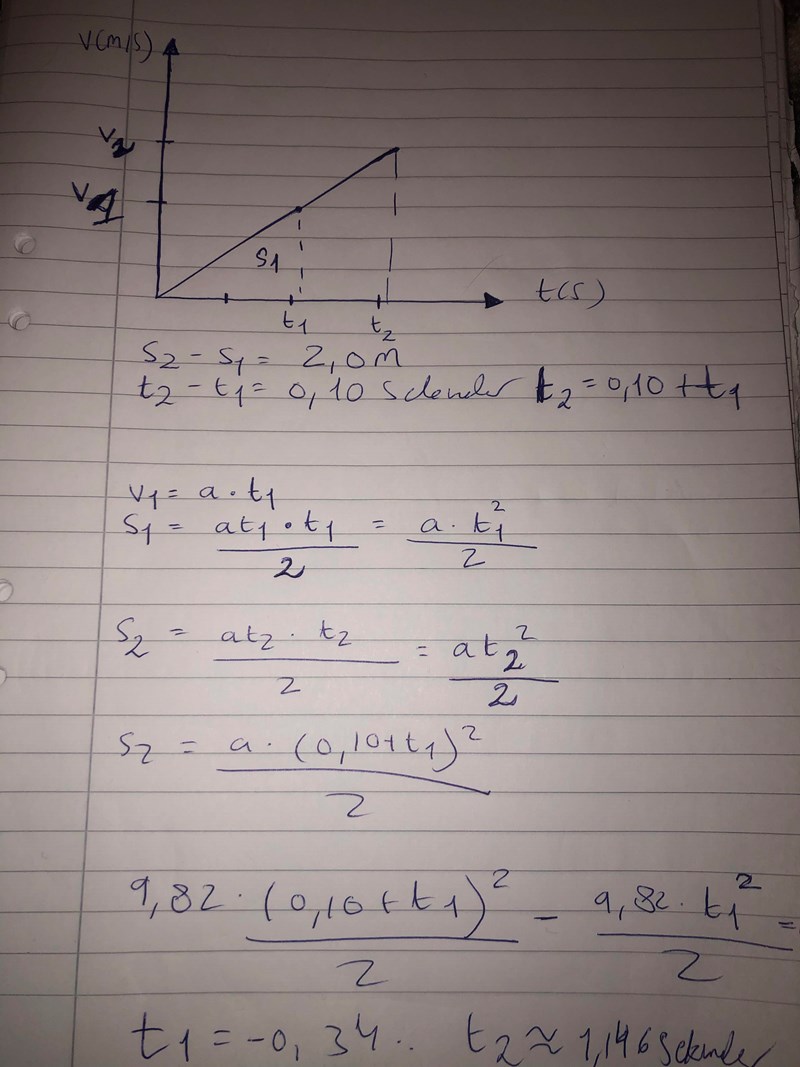 V(m/s)
V2
V1
S1
t(s)
t1 t2
S2 - S1 = 2,0m
t2 - t1 = 0,10 Sekunder t2 = 0,10 + t1
V1 = a · t1
S1 = at1 · t1 / 2 = a · t1² / 2
S2 = at2 · t2 / 2 = at2² / 2
S2 = a · (0,10+t1)² / 2
9,82 · (0,10 + t1)² / 2 - 9,82 · t1² / 2 =
t1 = -0,34.. t2 ≈ 1,146 Sekunder